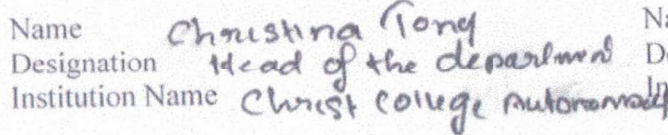 Name Christina Tony Na
Designation Head of the departmen De
Institution Name Christ College Autonomous In